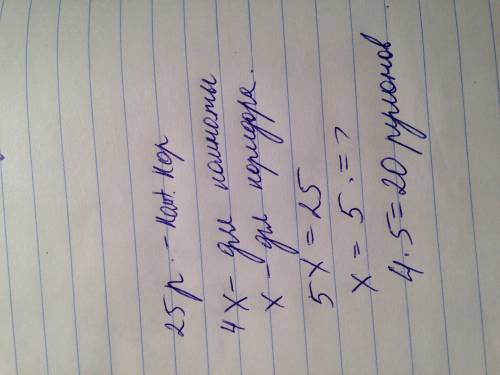 25 р. - комн. кор
4x - для комнаты
x - для коридора.
5x = 25
x = 5 . = >
4·5=20 рулонов